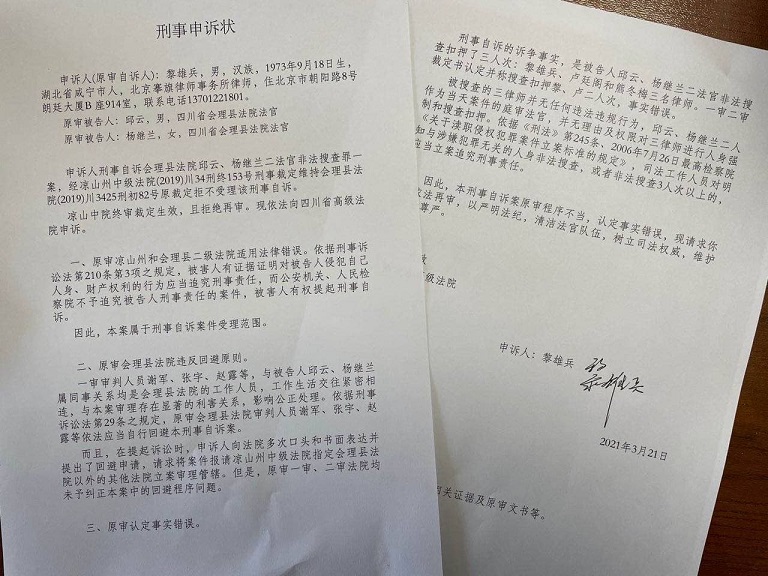 刑事申诉状
申诉人(原审自诉人)：黎雄兵，男，汉族，1973年9月18日生，
湖北省咸宁市人，北京摹旗律师事务所律师，住北京市朝阳路8号
朗廷大厦B座914室，联系电话13701221801。
原审被告人：邱云，男，四川省会理县法院法官
原审被告人：杨继兰，女，四川省会理县法院法官
申诉人刑事自诉会理县法院邱云、杨继兰二法官非法搜查罪一
案，经凉山州中级法院(2019)川34刑终153号刑事裁定维持会理县法
院(2019)川3425刑初82号原裁定拒不受理该刑事自诉。
凉山中院终审裁定生效，且拒绝再审。现依法向四川省高级法
院申诉。
一、原审凉山州和会理县二级法院适用法律错误。依据刑事诉
讼法第210条第3项之规定，被害人有证据证明对被告人侵犯自己
人身、财产权利的行为应当追究刑事责任，而公安机关、人民检
察院不予追究被告人刑事责任的案件，被害人有权提起刑事自
诉。
因此，本案属于刑事自诉案件受理范围。
二、原审会理县法院违反回避原则。
一审审判人员谢军、张宇、赵露等，与被告人邱云、杨继兰
属同事关系均是会理县法院的工作人员，工作生活交往紧密相
连，与本案审理存在显著的利害关系，影响公正处理。依据刑事
诉讼法第29条之规定，原审会理县法院审判人员谢军、张宇、赵
露等依法应当自行回避本刑事自诉案。
而且，在提起诉讼时，申诉人向法院多次口头和书面表达并
提出了回避申请，请求将案件报请凉山州中级法院指定会理县法
院以外的其他法院立案审理管辖。但是，原审一审、二审法院均
未予纠正本案中的回避程序问题。
三、原审认定事实错误。
刑事自诉的诉争事实，是被告人邱云、杨继兰二法官非法搜
查扣押了三人次：黎雄兵、卢廷阁和熊冬梅三名律师。一审二审
裁定书认定并称搜查扣押黎、卢二人次，事实错误。
被搜查的三律师并无任何违法违规行为，邱云、杨继兰二人
作为当天案件的庭审法官，并无理由及权限对三律师进行人身强
制和搜查扣押。依据《刑法》第245条、2006年7月26日最高检察院
《关于渎职侵权犯罪案件立案标准的规定》，司法工作人员对明
知与涉嫌犯罪无关的人身非法搜查，或者非法搜查3人次以上的，
应当立案追究刑事责任。
因此，本刑事自诉案原审程序不当，认定事实错误，现请求你
法再审，以严明法纪，清洁法官队伍，树立司法权威，维护
尊严。
级法院
申诉人：黎雄兵
黎雄兵
2021年3月21日
相关证据及原审文书等。